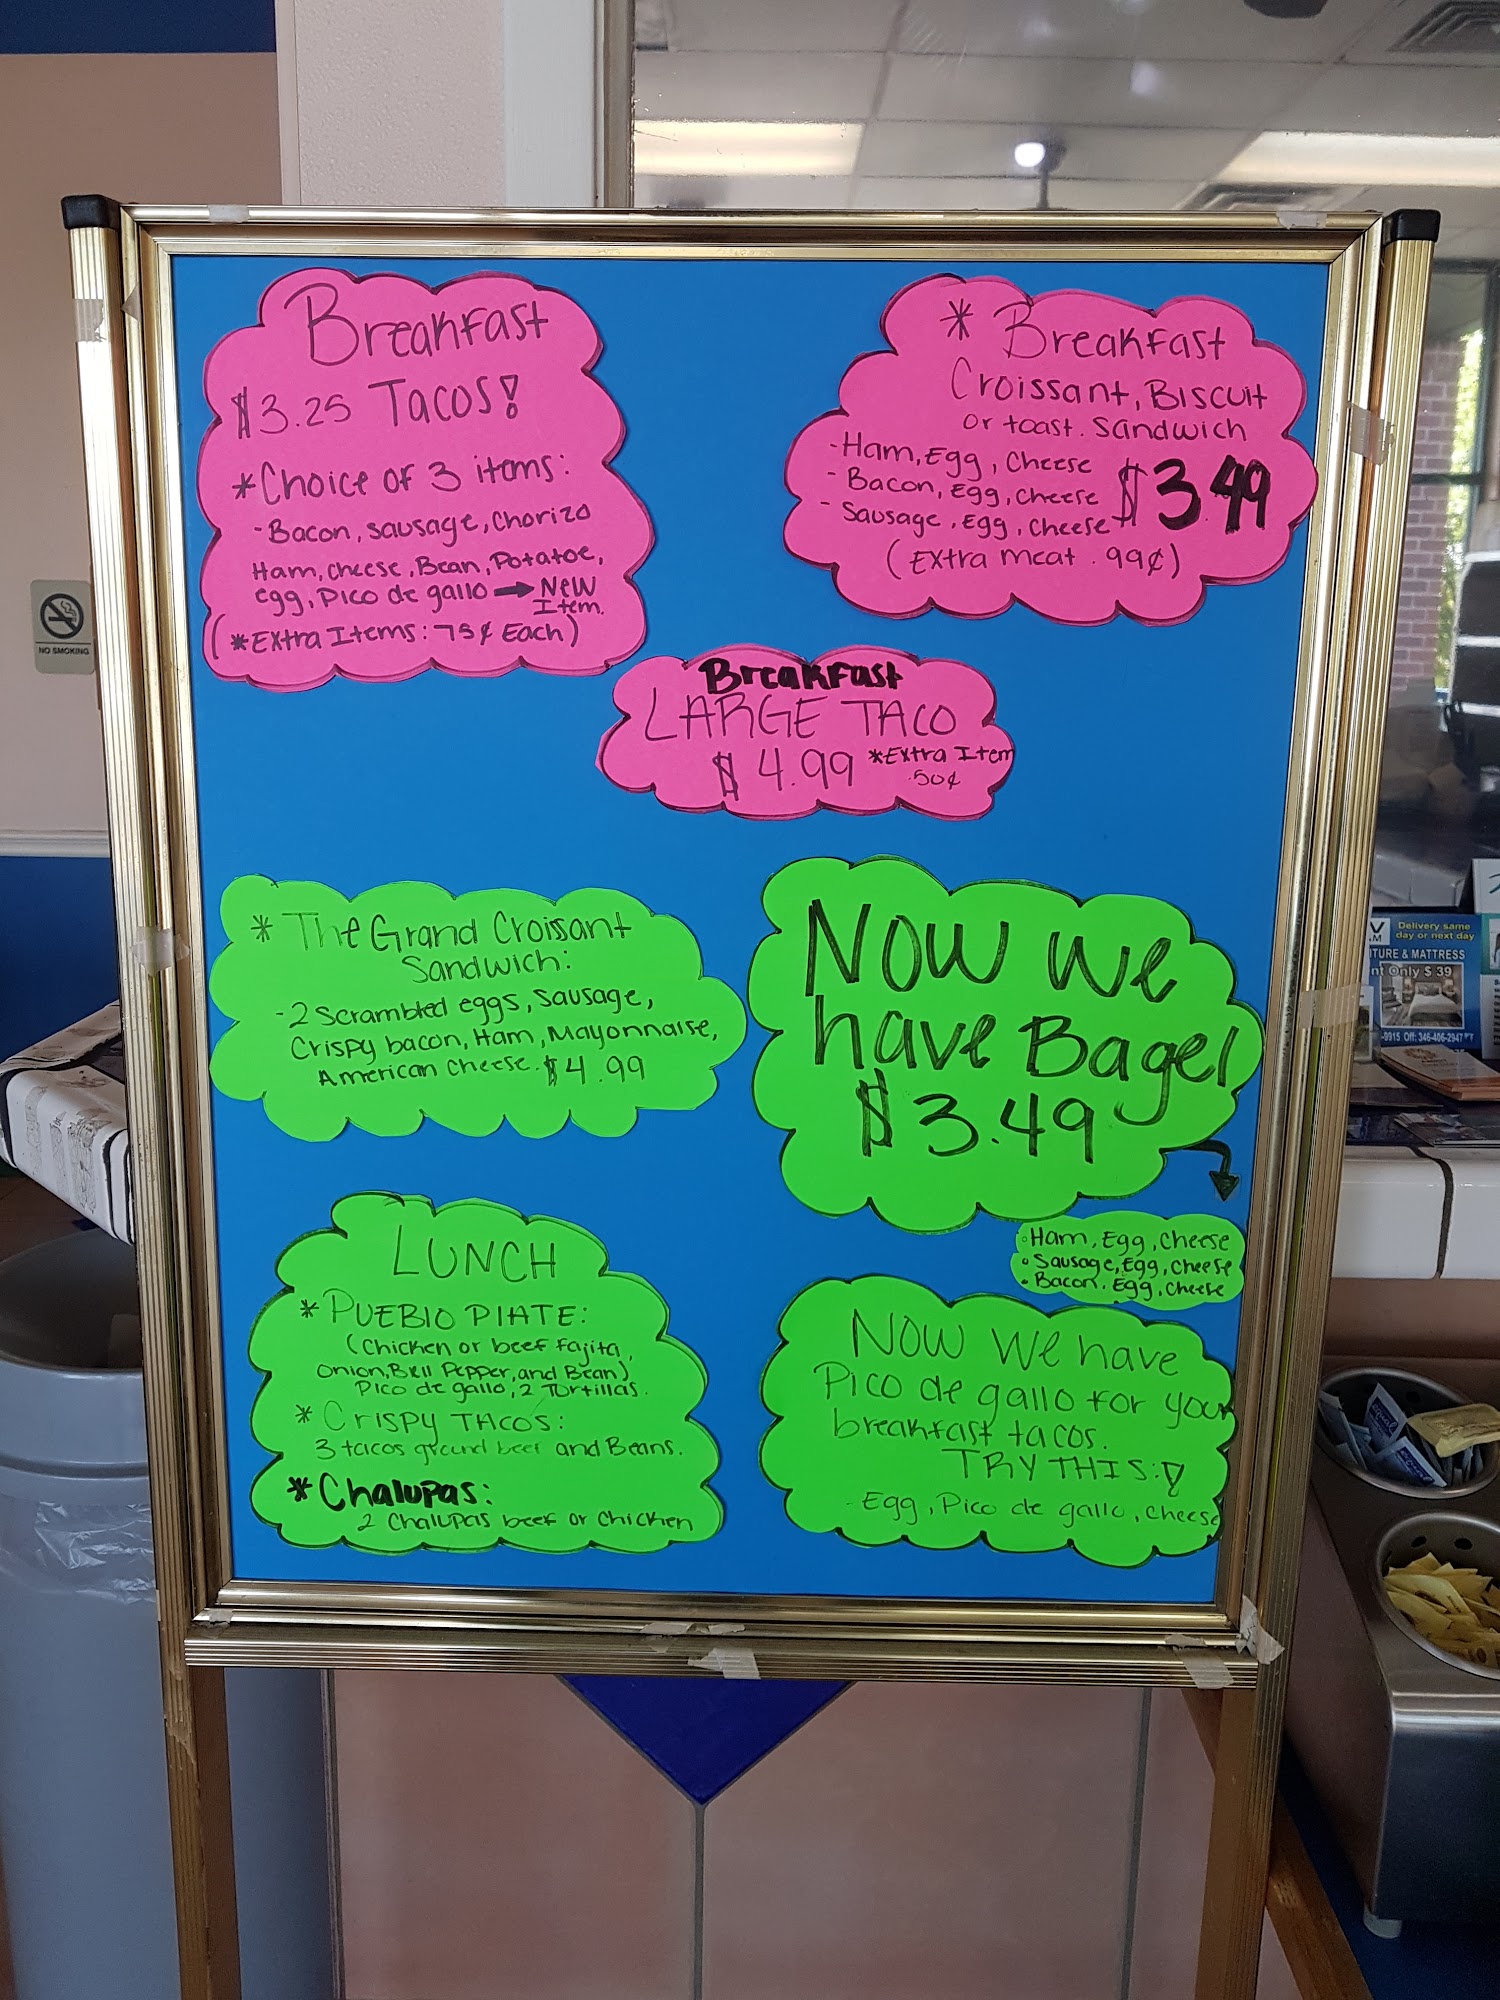 Breakfast
$3.25 Tacos!
*Choice of 3 items:
-Bacon, sausage, Chorizo
Ham, cheese, Bean, Potatoe,
egg, Pico de gallo → New
Item.
(*Extra Items: 75¢ Each)
* Breakfast
Croissant, Biscuit
or toast. Sandwich
-Ham, Egg, Cheese
-Bacon, Egg, Cheese
-Sausage, Egg, Cheese
$3.49
(Extra meat .99¢)
Breakfast
LARGE TACO
$4.99 *Extra Item
.50¢
* The Grand Croissant
Sandwich:
-2 Scrambled eggs, Sausage,
Crispy bacon, Ham, Mayonnaise,
American Cheese. $4.99
Now we
have Bagel
$3.49
Ham, Egg, Cheese
Sausage, Egg, Cheese
Bacon, Egg, Cheese
LUNCH
* PUEBlO PlATE:
(Chicken or beef Fajita,
Onion, Bell Pepper, and Bean)
Pico de gallo, 2 Tortillas.
* Crispy TACOS:
3 tacos ground beef and Beans.
*Chalupas:
2 Chalupas beef or Chicken
Now we have
Pico de gallo for your
breakfast tacos.
TRY THIS:!
- Egg, Pico de gallo, cheese
NO SMOKING
Delivery same
day or next day
TURE & MATTRESS
nt Only $ 39
-9915 Off: 346-406-2947
equal